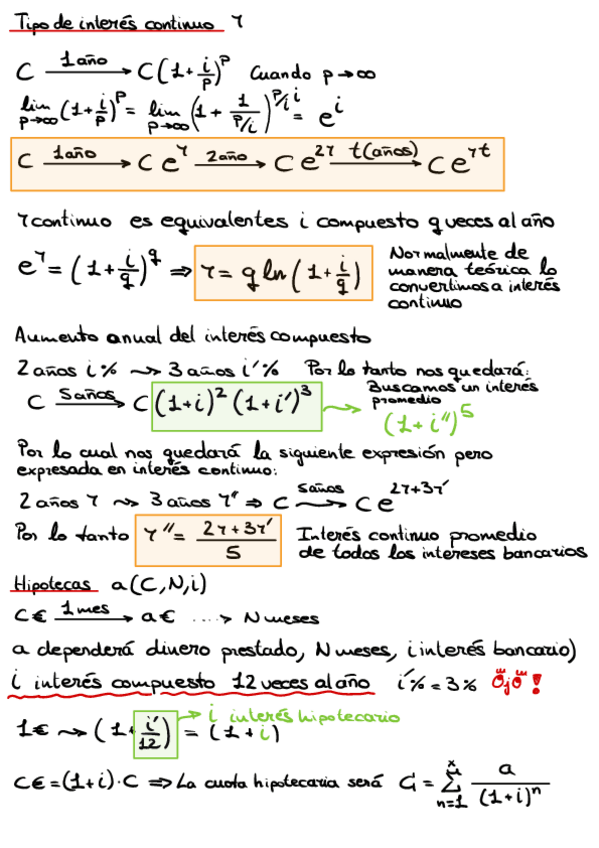 Tipo de interés continuo r
C 1 año → C(1+i/p)^p Cuando p→∞
lim p→∞ (1+i/p)^p = lim p→∞ (1+1/(p/i))^(p/i · i) = e^i
C 1 año → C e^r 2 año → C e^2r t(años) → C e^rt
r continuo es equivalentes i compuesto q veces al año
e^r = (1+i/q)^q ⇒ r = q ln(1+i/q) Normalmente de
manera teórica lo
convertimos a interés
continuo
Aumento anual del interés compuesto
2 años i% ⇝ 3 años i'% Por lo tanto nos quedará:
C 5 años → C (1+i)^2 (1+i')^3 → Buscamos un interés
promedio
(1+i'')^5
Por lo cual nos quedará la siguiente expresión pero
expresada en interés continuo:
2 años r ⇝ 3 años r' ⇒ C 5 años → C e^(2r+3r')
Por lo tanto r'' = (2r+3r')/5 Interés continuo promedio
de todos los intereses bancarios
Hipotecas a(C,N,i)
C€ 1 mes → a€ ····> N meses
a dependerá dinero prestado, N meses, i interés bancario)
i interés compuesto 12 veces al año i'% = 3% Ojo!
1€ ⇝ (1+i'/12) = (1+i) → i interés hipotecario
C€ = (1+i)·C ⇒ La cuota hipotecaria será G = Σ n=1 a/(1+i)^n